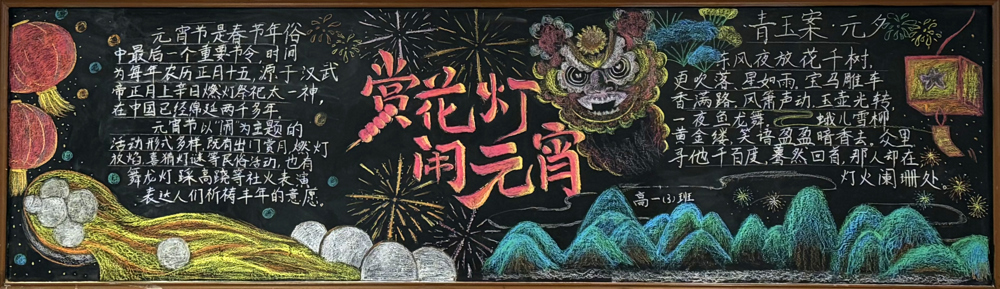 元宵节是春节年俗
中最后一个重要节令,时间
为每年农历正月十五,源于汉武
帝正月上辛日燃灯祭祀太一神,
在中国已经绵延两千多年。
元宵节以“闹”为主题的
活动形式多样,既有出门赏月、燃灯
放焰、喜猜灯谜等民俗活动,也有
舞龙灯、踩高跷等社火表演
表达人们祈祷丰年的意愿。
赏花灯
闹元宵
青玉案·元夕
东风夜放花千树,
更吹落、星如雨,宝马雕车
香满路。凤箫声动,玉壶光转,
一夜鱼龙舞。蛾儿雪柳
黄金缕,笑语盈盈暗香去。众里
寻他千百度,蓦然回首,那人却在,
灯火阑珊处。
高一(3)班